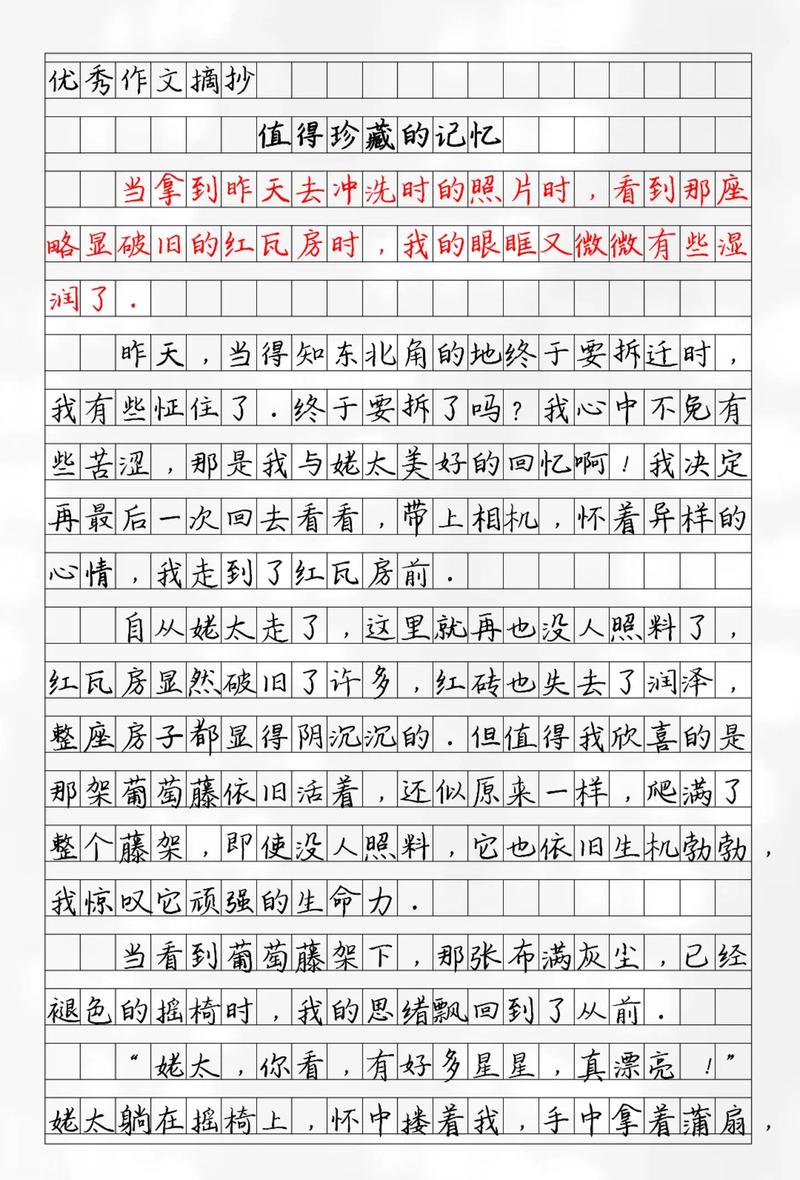 优秀作文摘抄
值得珍藏的记忆
当拿到昨天去冲洗时的照片时，看到那座
略显破旧的红瓦房时，我的眼眶又微微有些湿
润了．
昨天，当得知东北角的地终于要拆迁时，
我有些怔住了．终于要拆了吗？我心中不免有
些苦涩，那是我与姥太美好的回忆啊！我决定
再最后一次回去看看，带上相机，怀着异样的
心情，我走到了红瓦房前．
自从姥太走了，这里就再也没人照料了，
红瓦房显然破旧了许多，红砖也失去了润泽，
整座房子都显得阴沉沉的．但值得我欣喜的是
那架葡萄藤依旧活着，还似原来一样，爬满了
整个藤架，即使没人照料，它也依旧生机勃勃，
我惊叹它顽强的生命力．
当看到葡萄藤架下，那张布满灰尘，已经
褪色的摇椅时，我的思绪飘回到了从前．
“姥太，你看，有好多星星，真漂亮！”
姥太躺在摇椅上，怀中搂着我，手中拿着蒲扇，